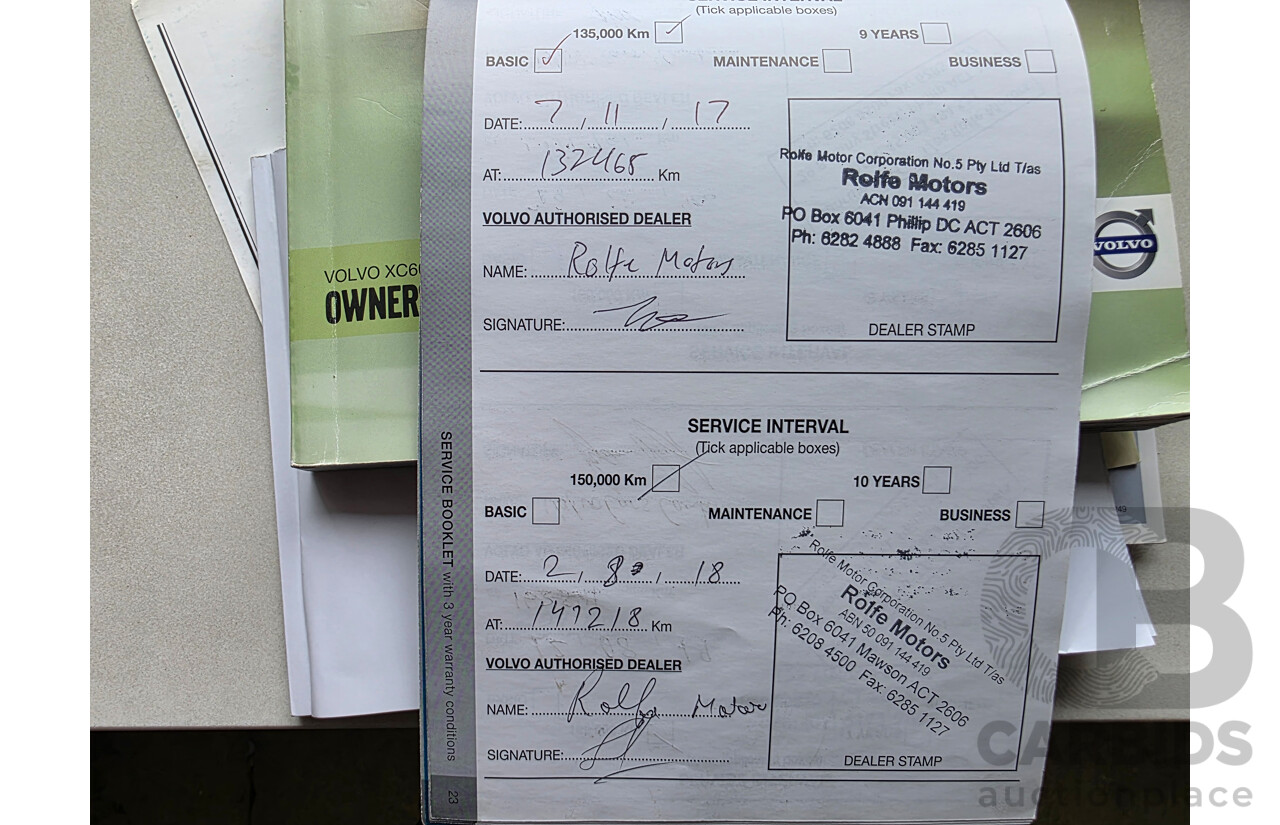 (Tick applicable boxes)
135,000 Km ✓ 9 YEARS
BASIC ✓ MAINTENANCE BUSINESS
DATE: 7 / 11 / 17
AT: 132468 Km
VOLVO AUTHORISED DEALER
NAME: Rolfe Motors
SIGNATURE:
Rolfe Motor Corporation No.5 Pty Ltd T/as
Rolfe Motors
ACN 091 144 419
PO Box 6041 Phillip DC ACT 2606
Ph: 6282 4888 Fax: 6285 1127
DEALER STAMP
SERVICE INTERVAL
(Tick applicable boxes)
150,000 Km 10 YEARS
BASIC MAINTENANCE BUSINESS
DATE: 2 / 8 / 18
AT: 147218 Km
VOLVO AUTHORISED DEALER
NAME: Rolfe Motor
SIGNATURE:
Rolfe Motor Corporation No.5 Pty Ltd T/as
Rolfe Motors
ABN 50 091 144 419
PO Box 6041 Mawson ACT 2606
Ph: 6208 4500 Fax: 6285 1127
DEALER STAMP
SERVICE BOOKLET with 3 year warranty conditions
23
VOLVO XC60
OWNER
VOLVO
CARBIDS
auctionplace